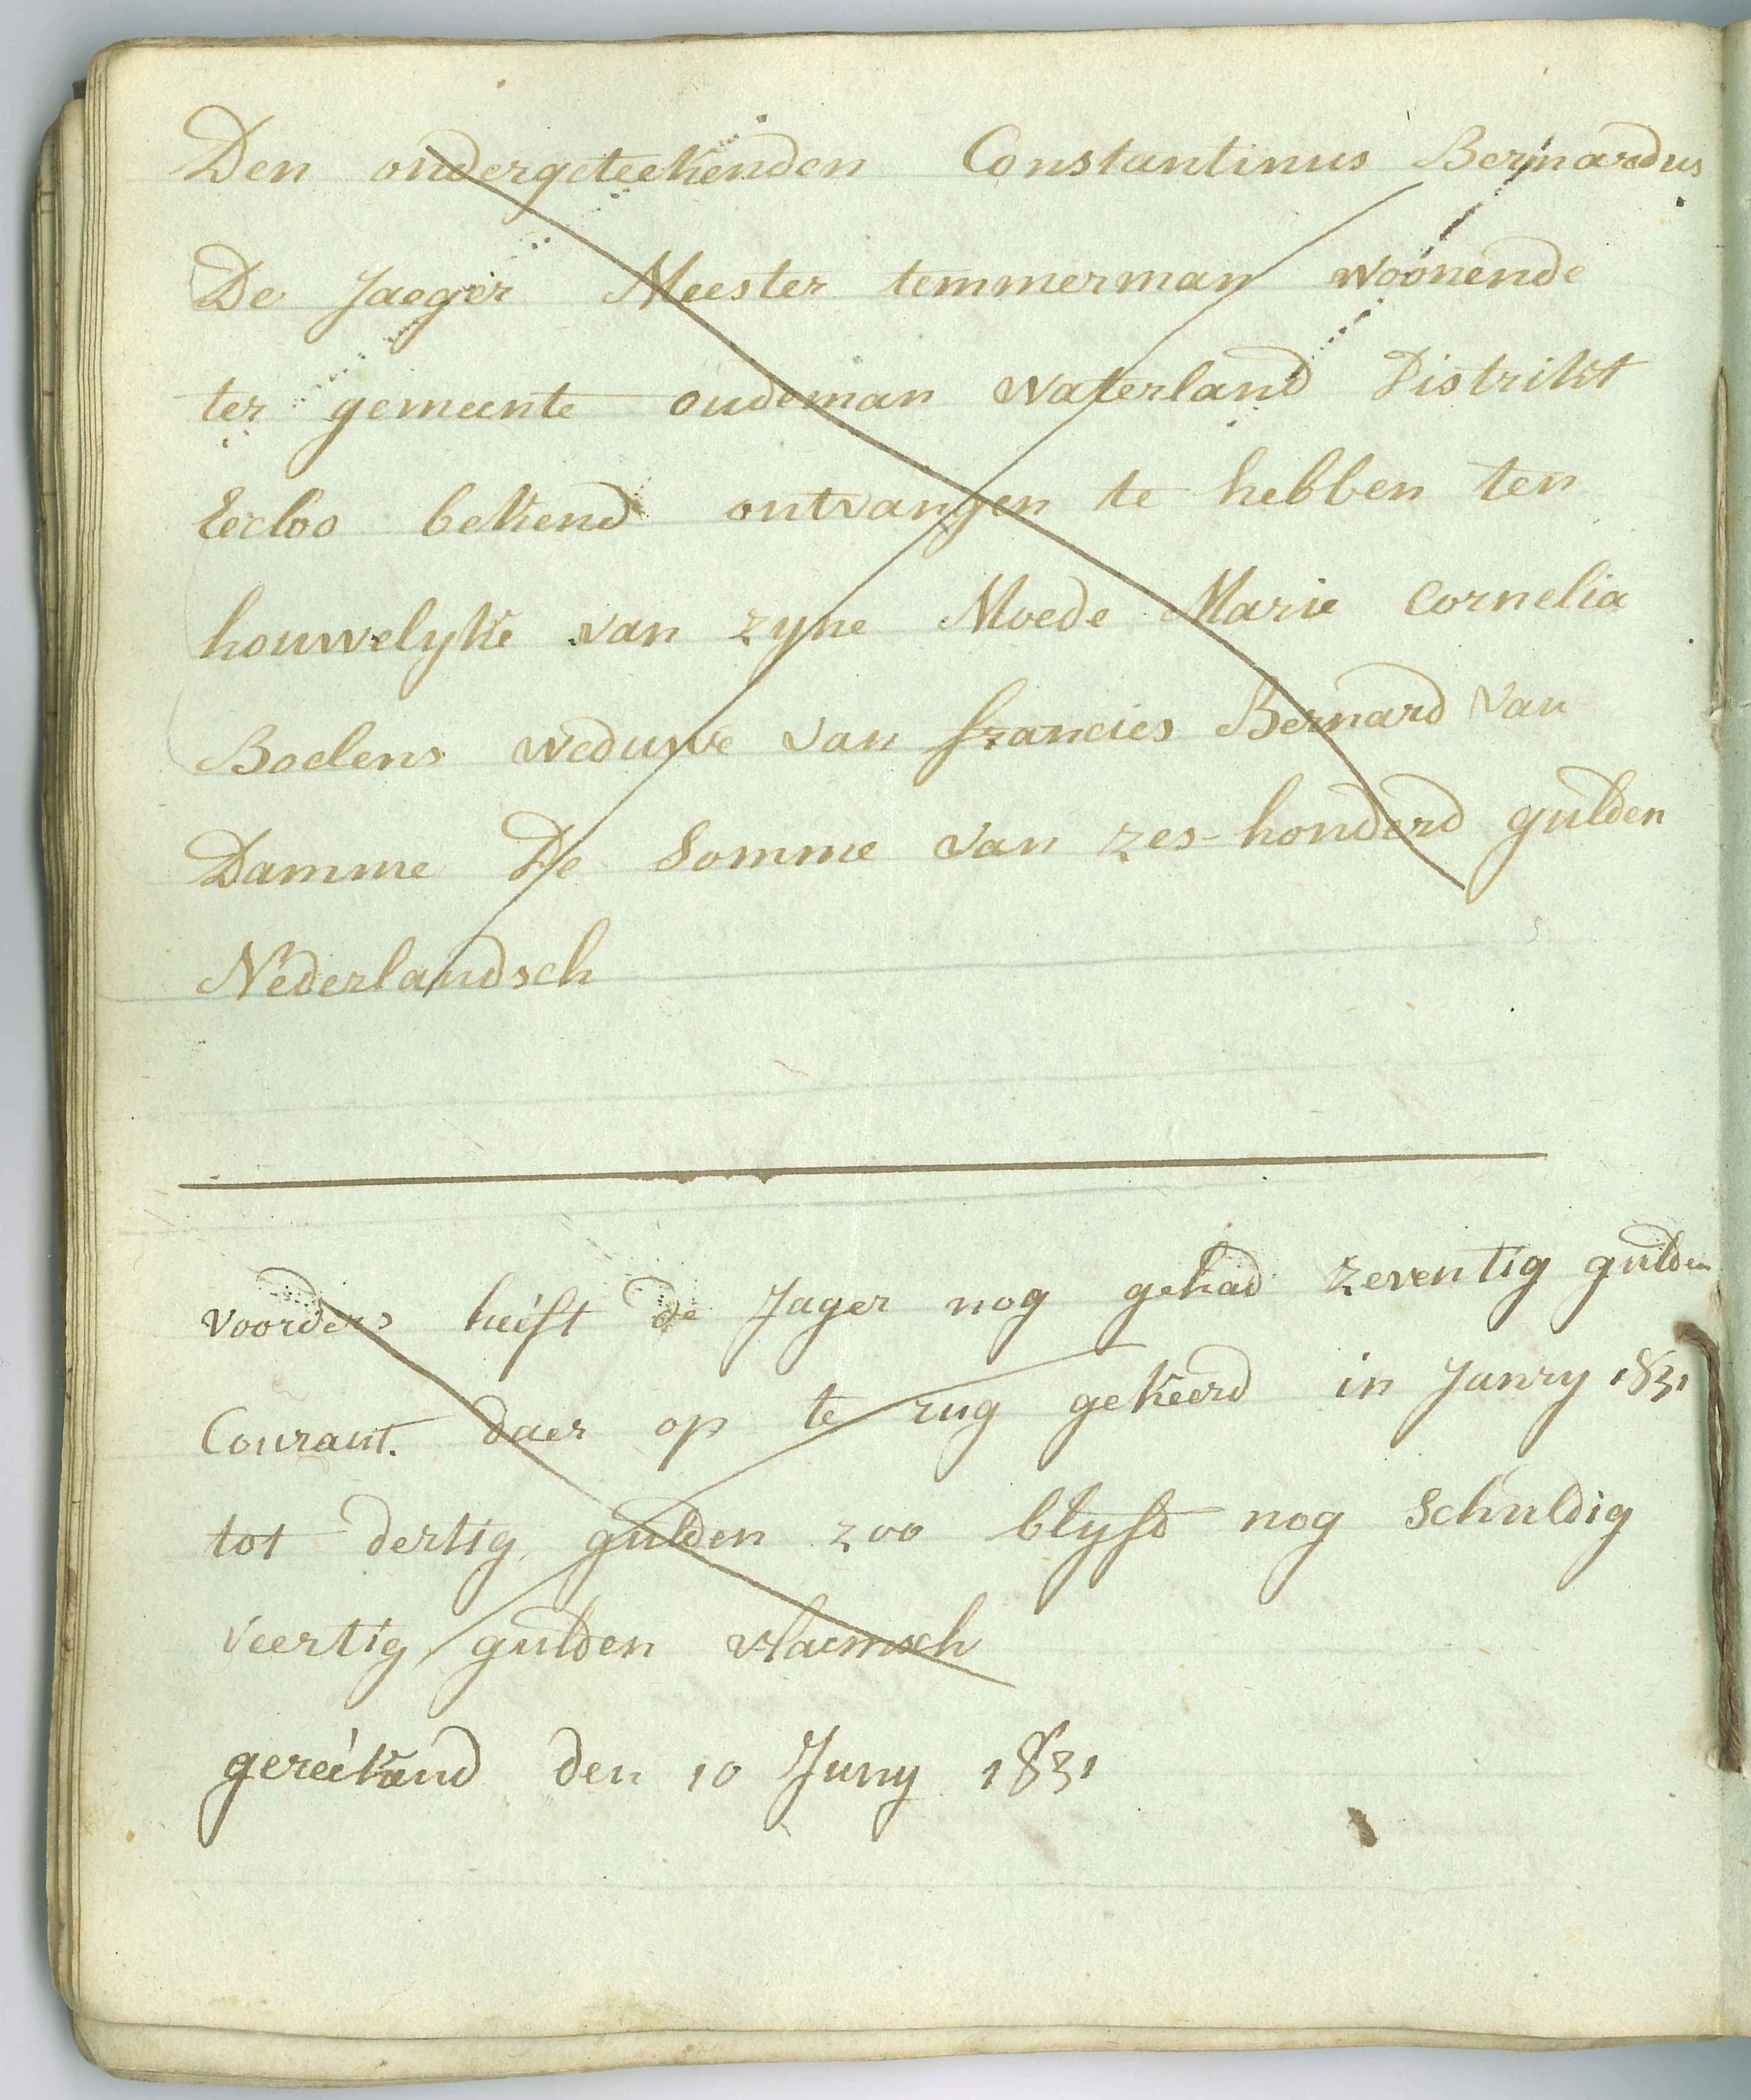 Den ondergeteekenden Constantinus Bernardus
De Jaeger Meester temmerman woonende
ter gemeente oudeman waterland Distrikt
Eecloo bekend ontvangen te hebben ten
houwelyke van zyne Moede Marie Cornelia
Boelens weduwe van francies Bernard van
Damme De Somme van zes-honderd gulden
Nederlandsch
voorders heeft de Jager nog gehad zeventig gulden
Courant. daer op te rug gekeerd in Janry 1831
tot dertig gulden zoo blyft nog schuldig
veertig gulden vlaemsch
gereekend den 10 Juny 1831